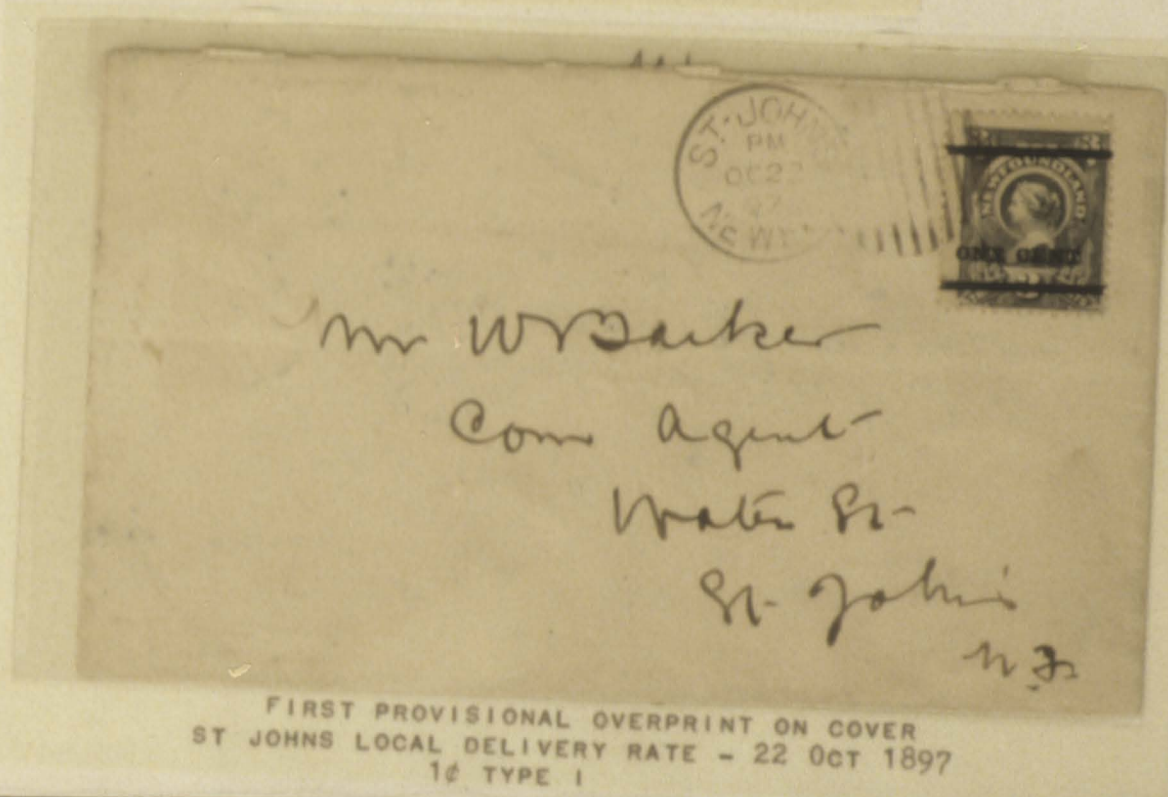 ST. JOHN'S
PM
OC 22
97
NEW
NEWFOUNDLAND
ONE CENT
Mr W Barker
Com Agent
Water St-
St- John's
N.F.
FIRST PROVISIONAL OVERPRINT ON COVER
ST JOHNS LOCAL DELIVERY RATE - 22 OCT 1897
1¢ TYPE I